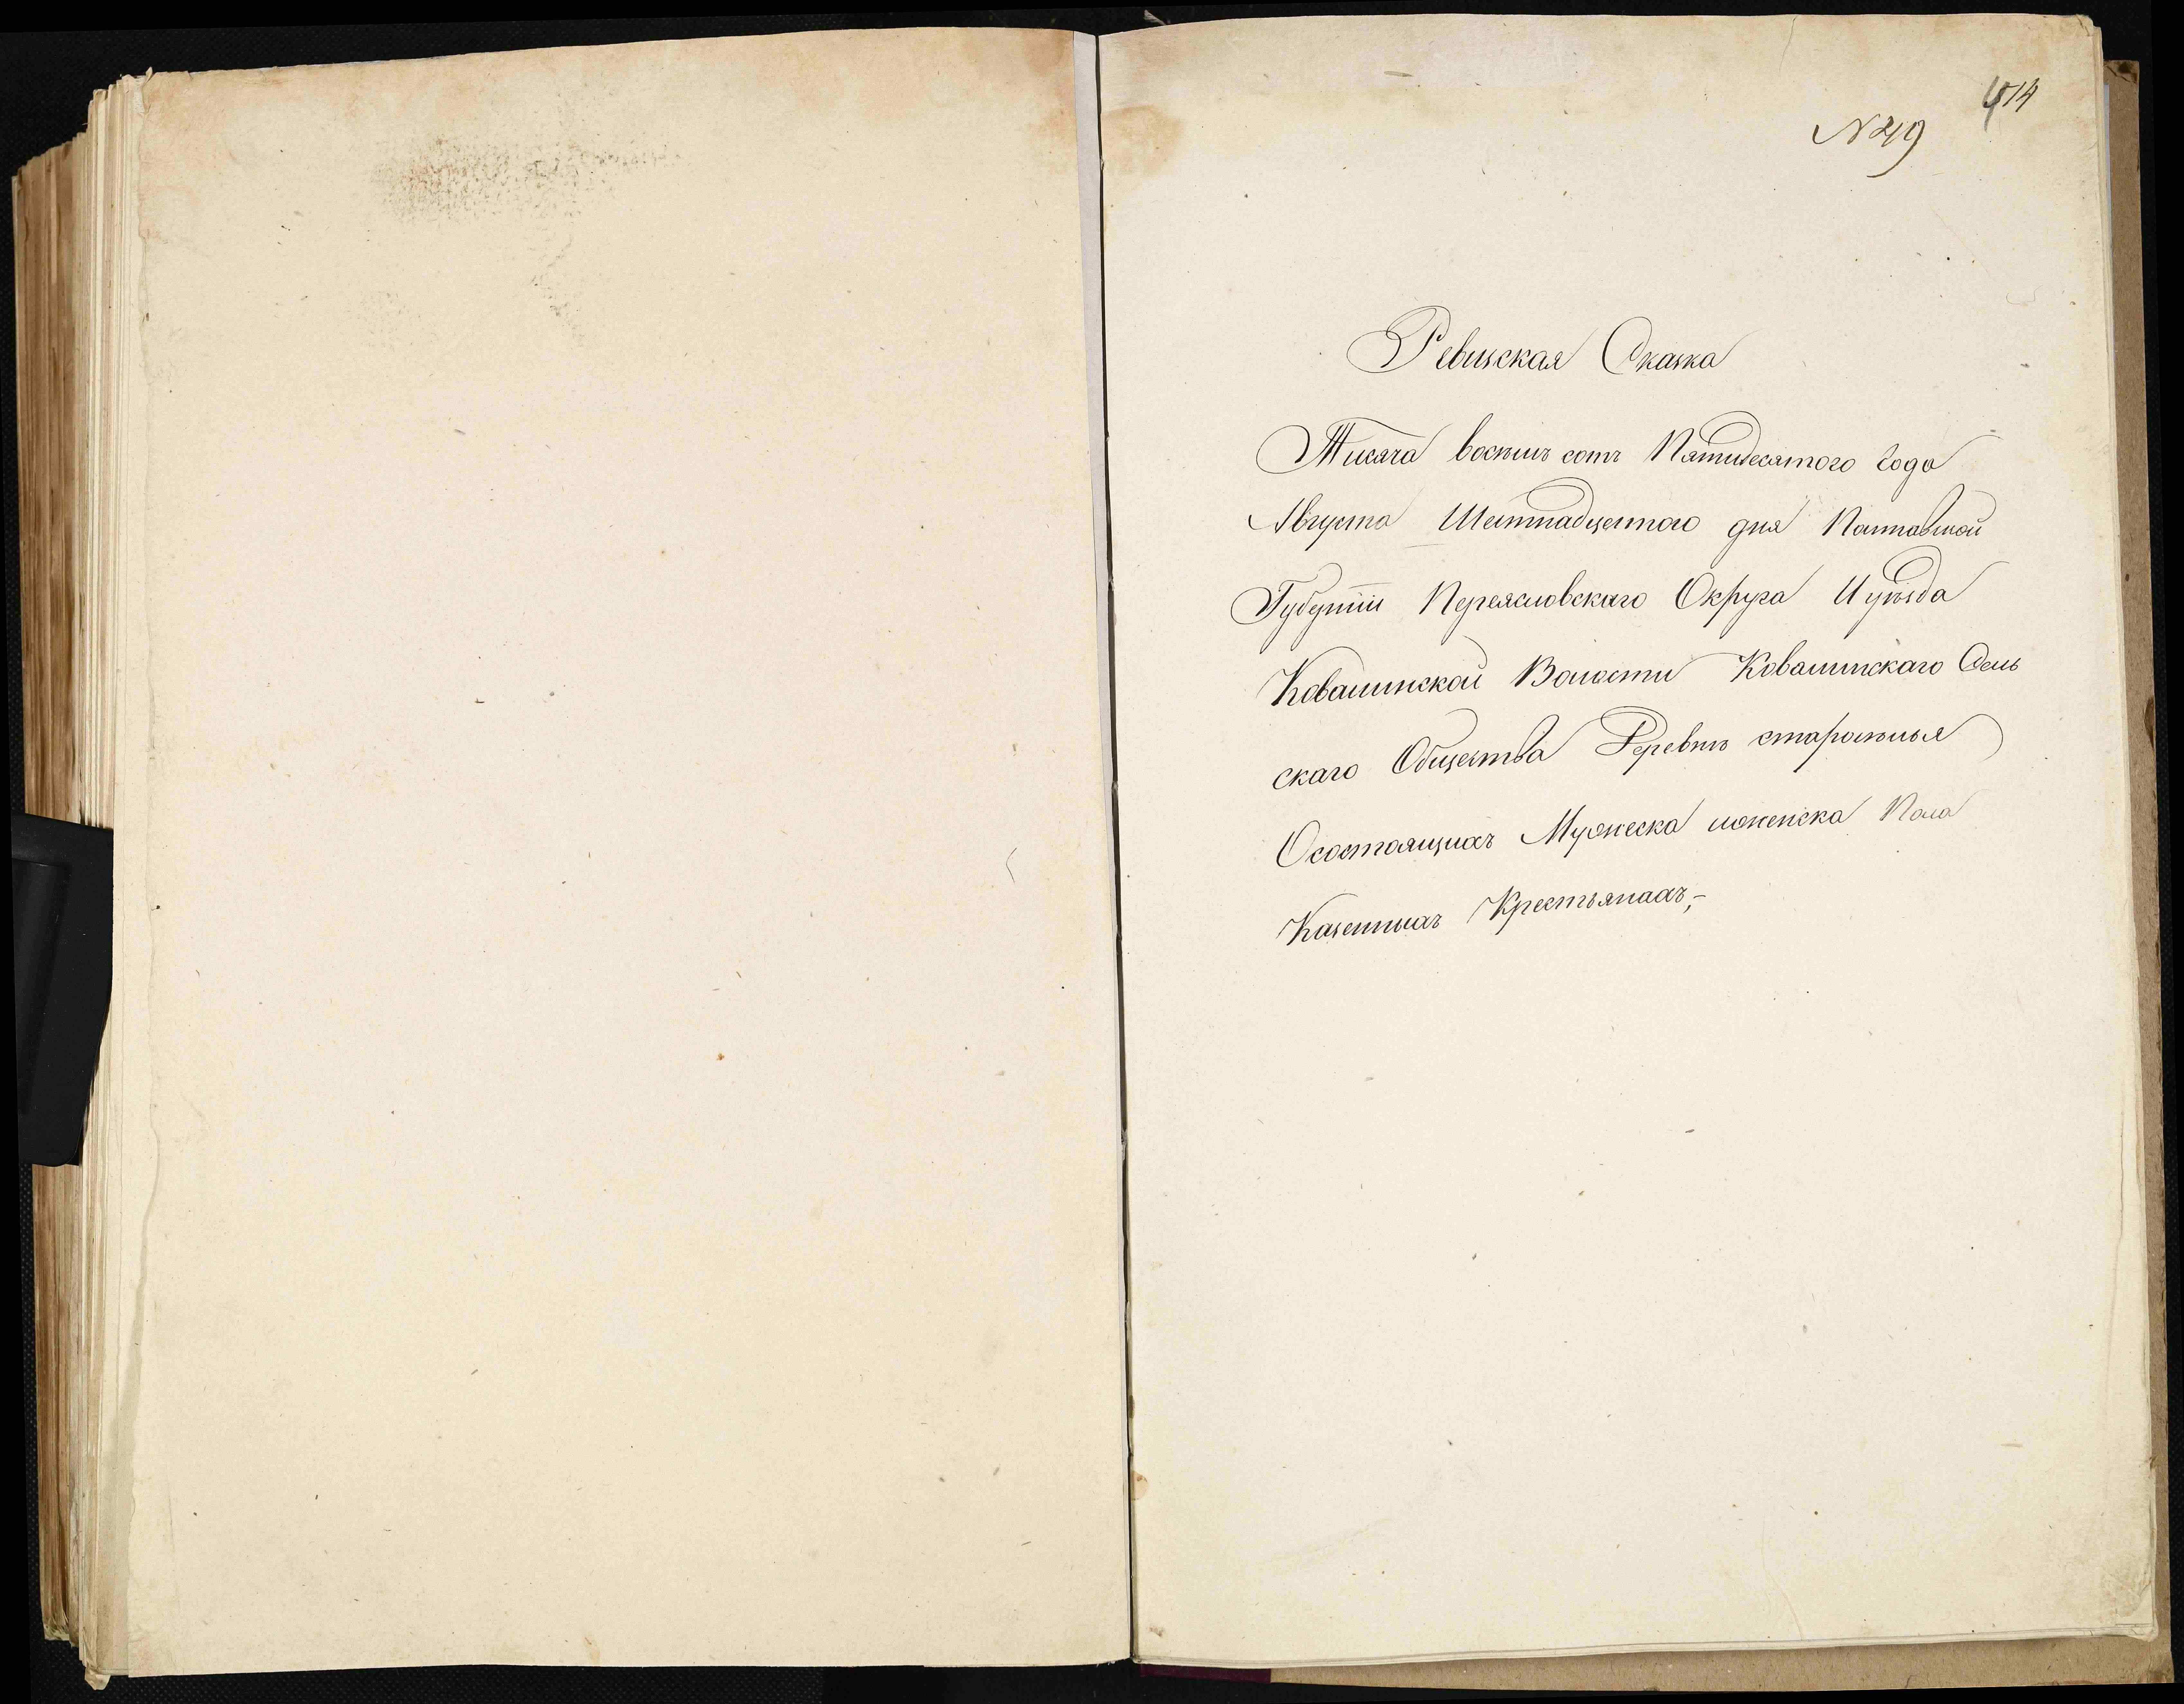 414
N 219
Ревиская Сказка
Тисяча восемь сотъ Пятидесятого года
Августа Шестнадцетого дня Полтавской
Губернiи Переясловскаго Округа Иуѣзда
Ковалинской Волости Ковалинскаго Сель
скаго Общества Деревнѣ
Осостоящихъ Мужеска иженска Пола
Казенныхъ Крестьянахъ,-